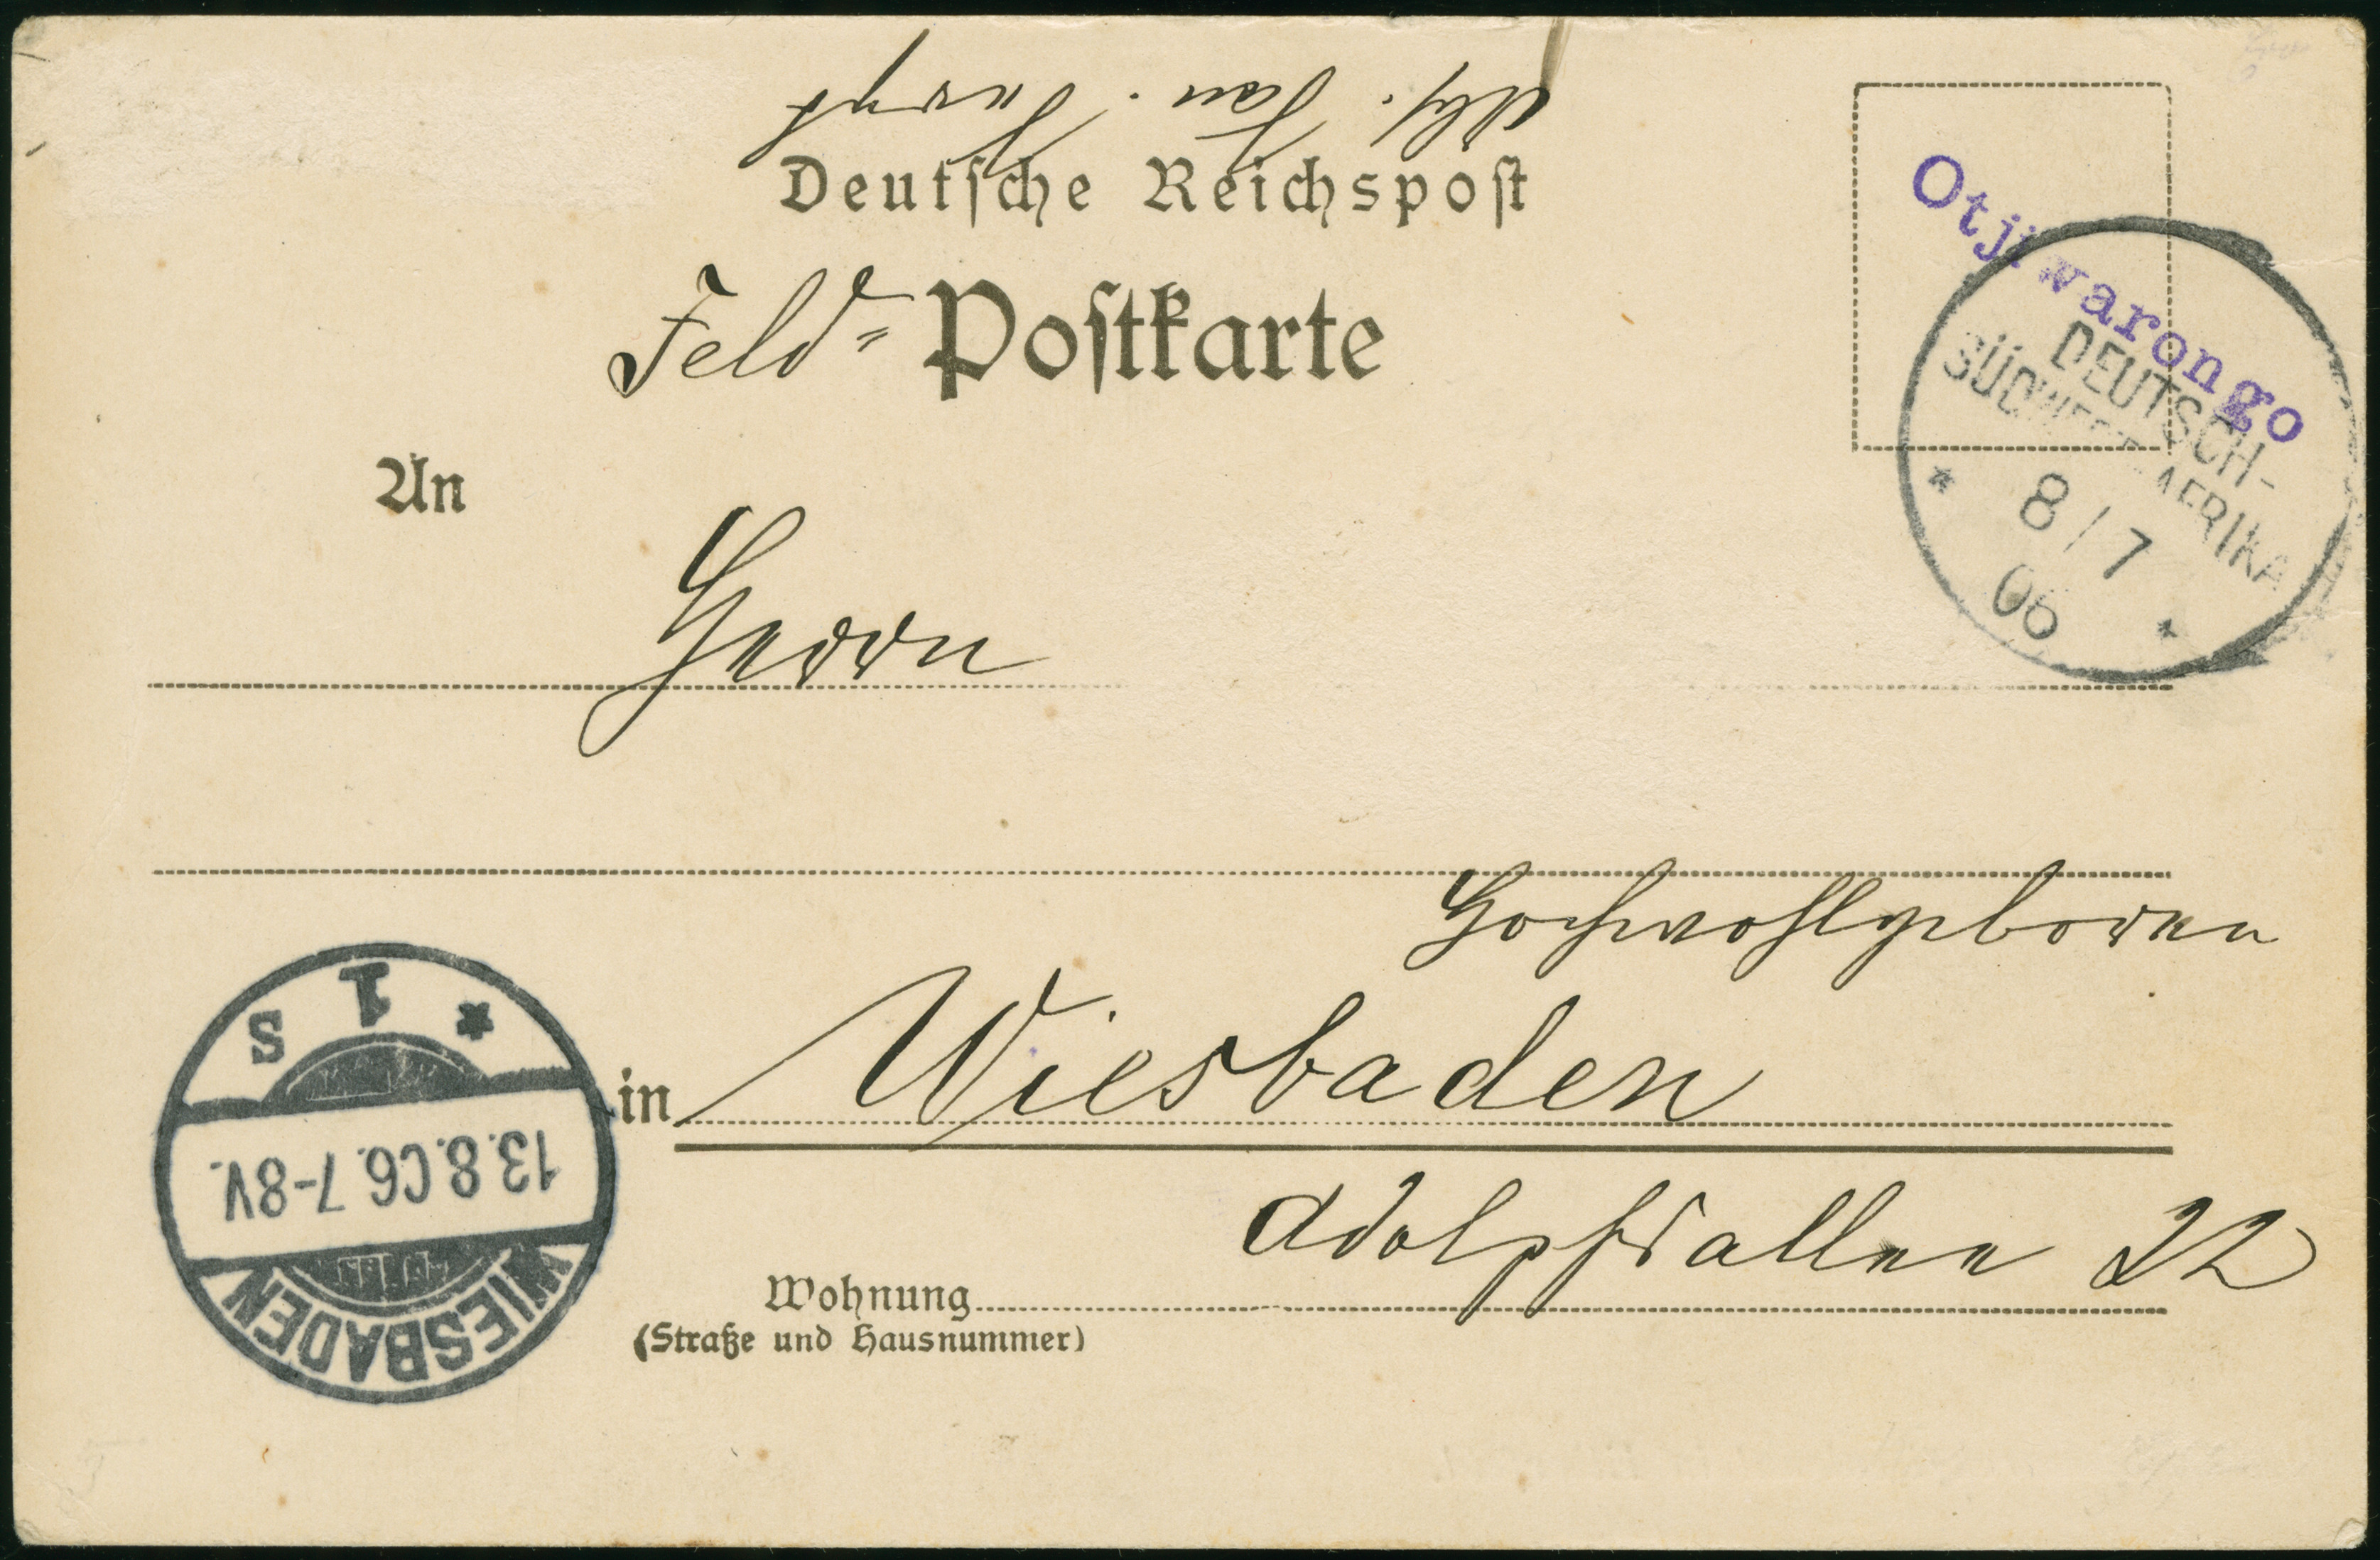 Deutsche Reichspost
Feld= Postkarte
Otjiwarongo
DEUTSCH-
SÜDWESTAFRIKA
* 8/7 *
06
An
Herrn
Hochwohlgeboren
in Wiesbaden
Adolphsallee 22
Wohnung
(Straße und Hausnummer)
WIESBADEN
13.8.06.7-8V.
* 1 s